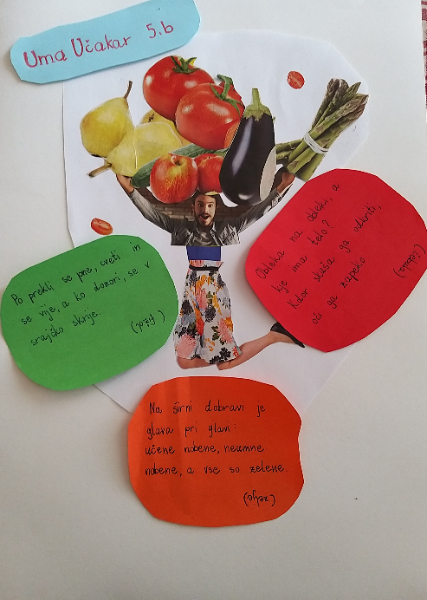 Uma Učakar 5.b
Po preklji se pne, cveti in
se vije, a ko dozori, se v
srajčko skrije.
Obleka na obleki, a
kje ima telo?
Kdor skuša ga odkriti,
oči ga zapeko.
(čebula)
Na širni dobravi je
glava pri glavi:
učene nobene, neumne
nobene, a vse so zelene.
(zelje)